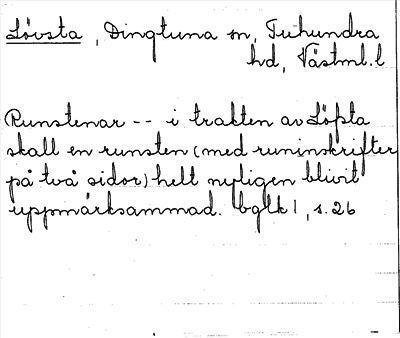 Lövsta, Dingtuna sn, Tuhundra
hd, Västml. l
Runstenar -- i trakten av Löfsta
skall en runsten (med runinskrifter
på två sidor) helt nyligen blivit
uppmärksammad. bglk 1, s. 26